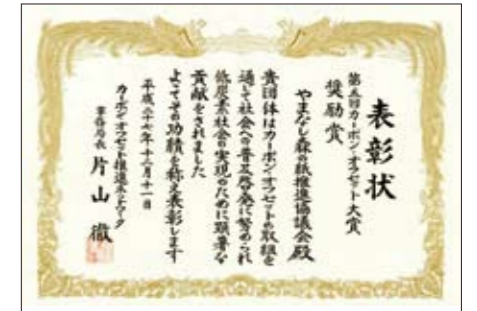 表彰状
第五回カーボン・オフセット大賞
奨励賞
やまなし森の紙推進協議会殿
貴団体はカーボン・オフセットの取組を
通して社会への普及啓発に努められ
低炭素社会の実現のために顕著な
貢献をされました
よってその功績を称え表彰します
平成二十七年十二月十一日
カーボン・オフセット推進ネットワーク
事務局長 片山徹